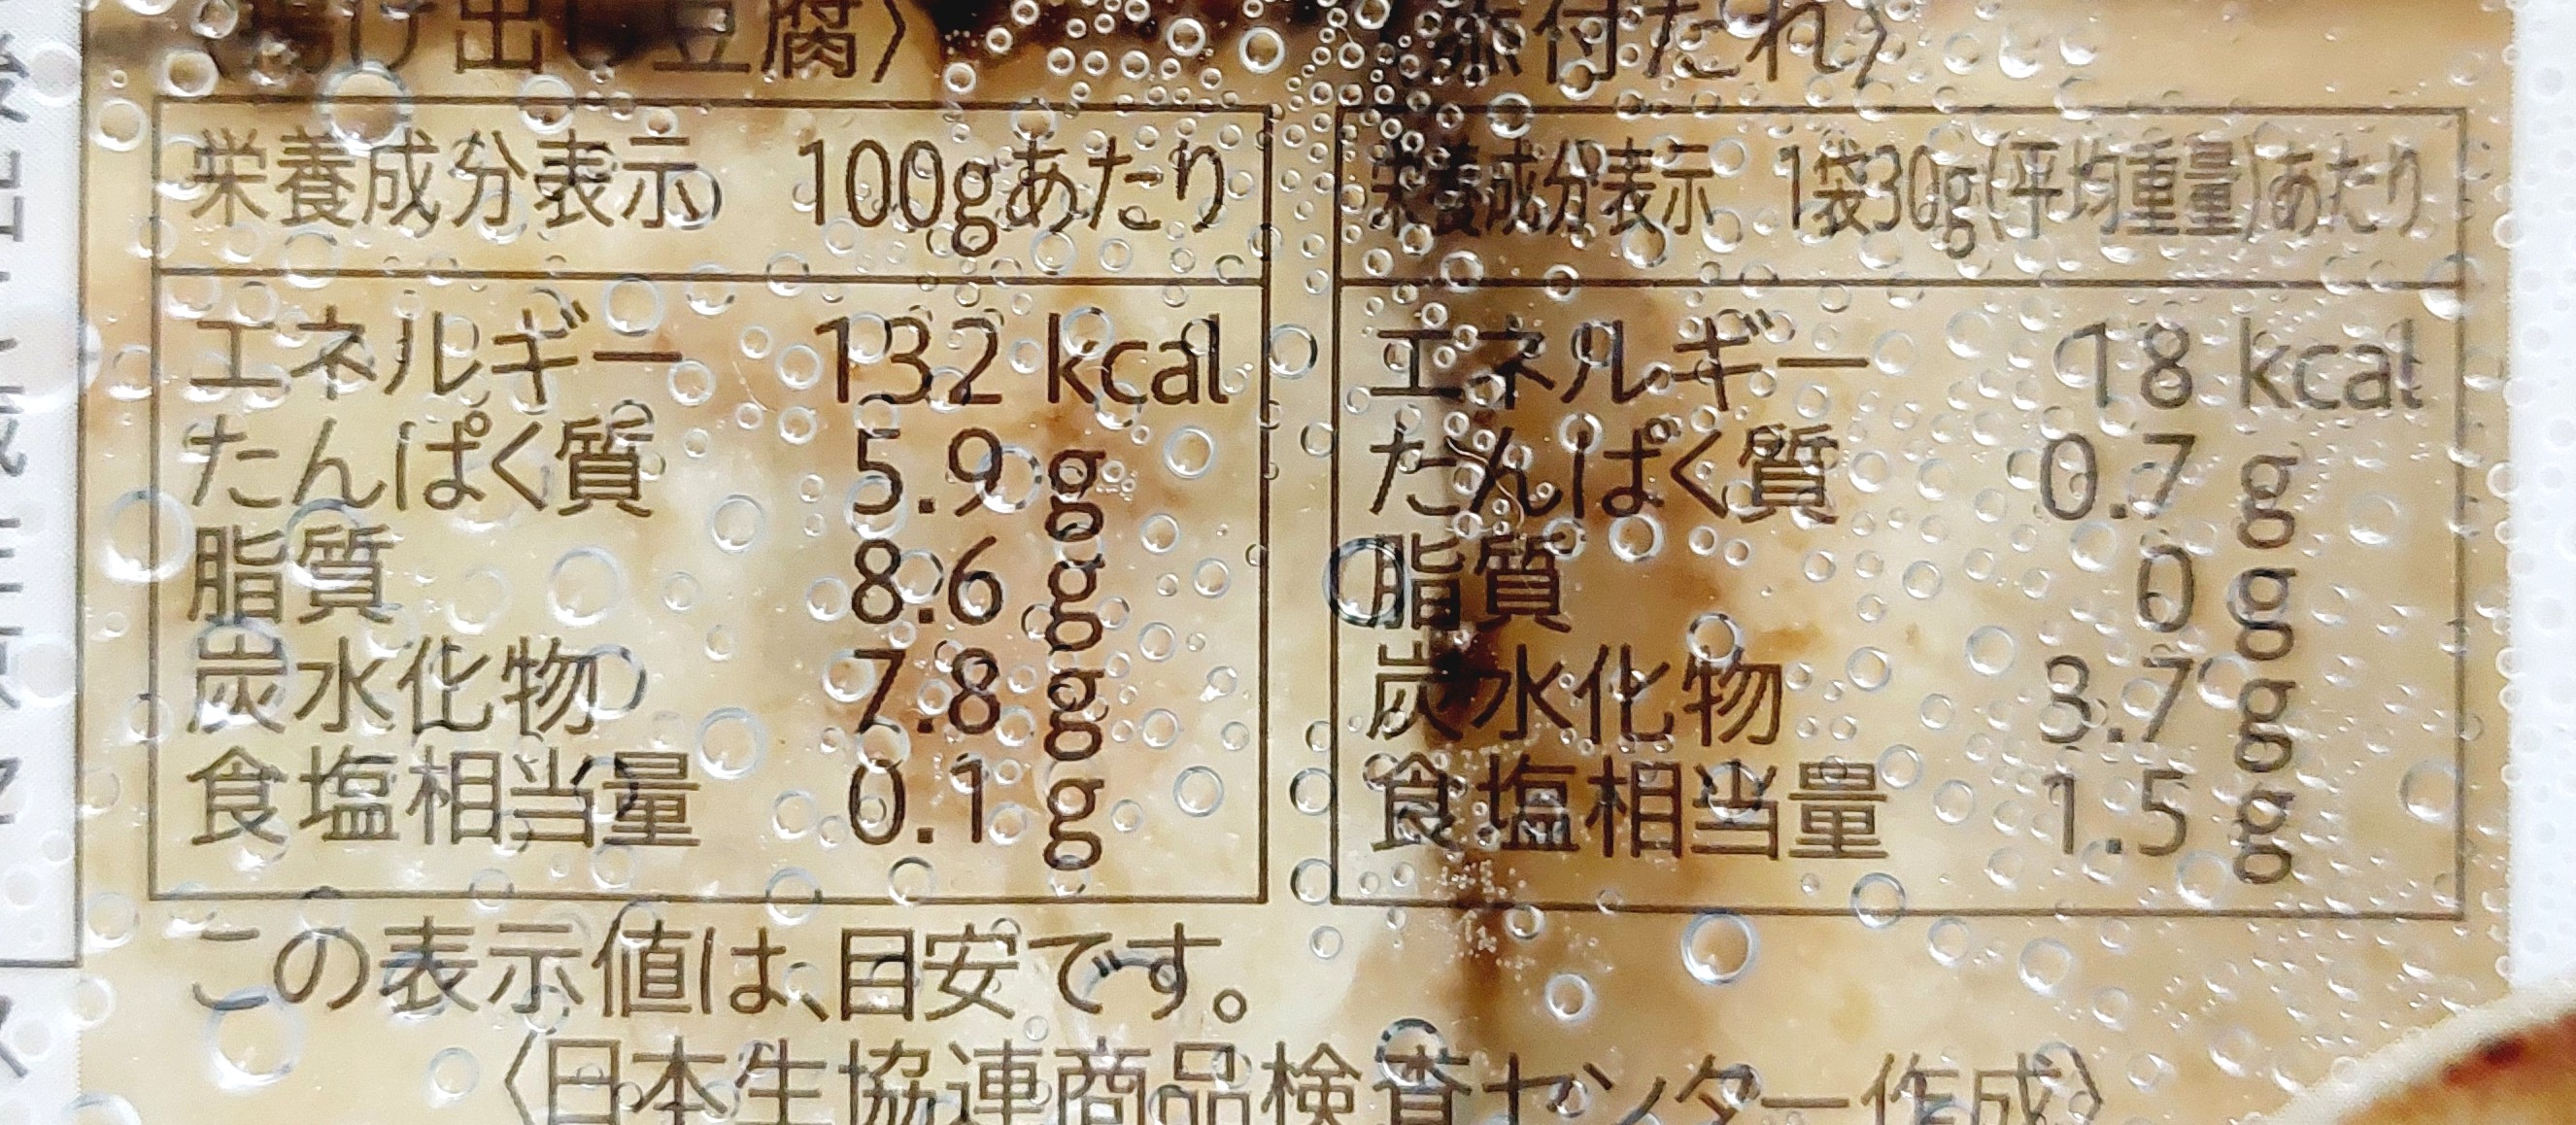 〈揚げ出し豆腐〉
栄養成分表示 100gあたり
エネルギー 132 kcal
たんぱく質 5.9 g
脂質 8.6 g
炭水化物 7.8 g
食塩相当量 0.1 g
〈添付たれ〉
栄養成分表示 1袋30g(平均重量)あたり
エネルギー 18 kcal
たんぱく質 0.7 g
脂質 0 g
炭水化物 3.7 g
食塩相当量 1.5 g
この表示値は、目安です。
〈日本生協連商品検査センター作成〉